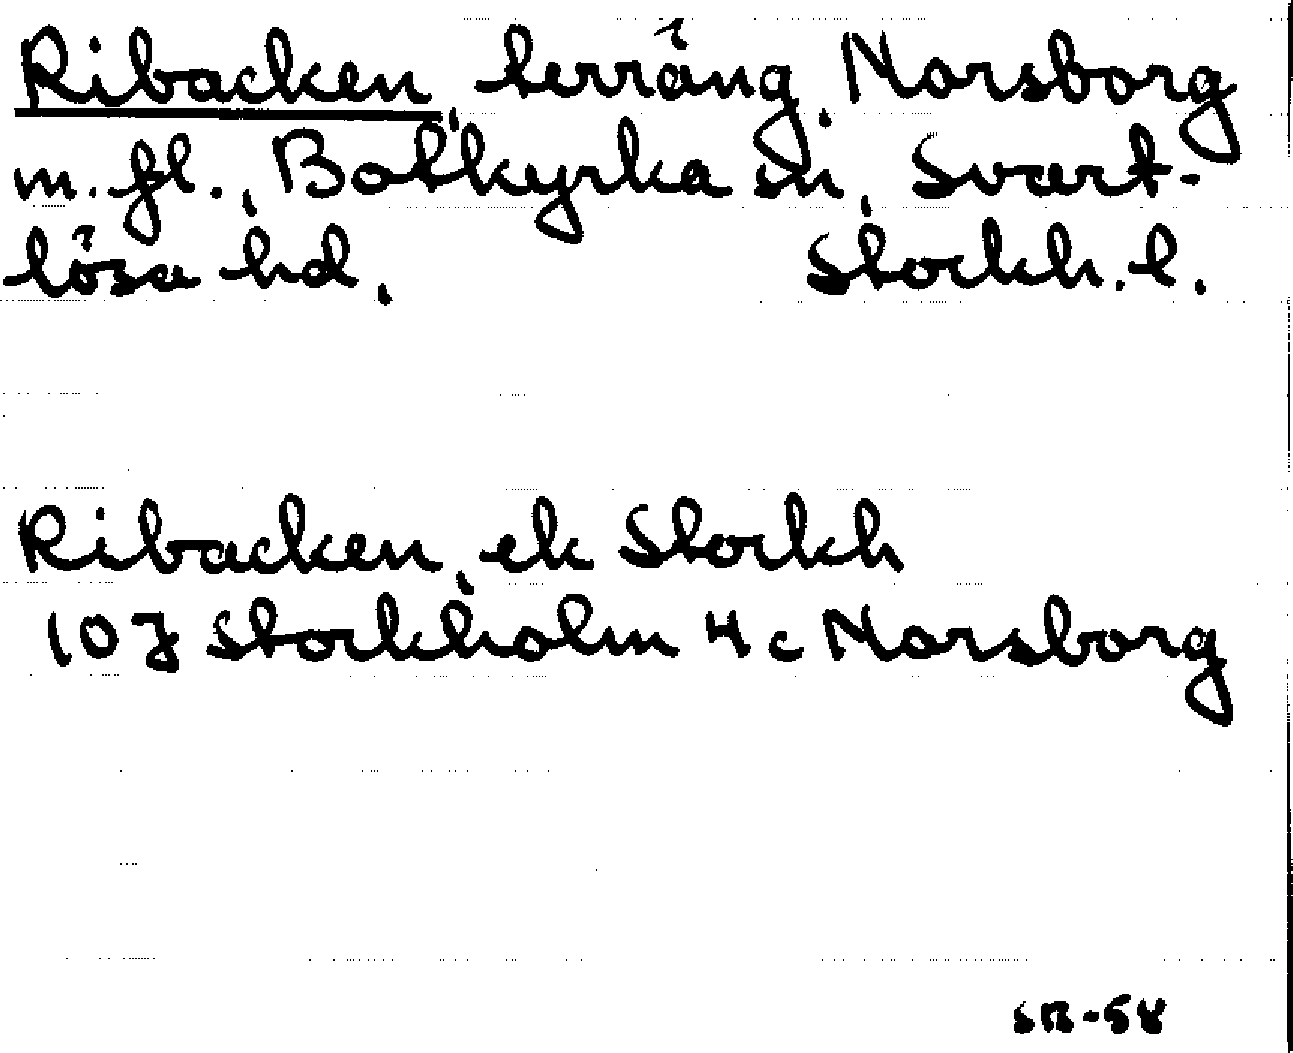 Ribacken, terräng, Norsborg
m. fl., Botkyrka sn, Svart-
lösa hd, Stockh. l.
Ribacken, ek Stockh
10J Stockholm 4c Norsborg